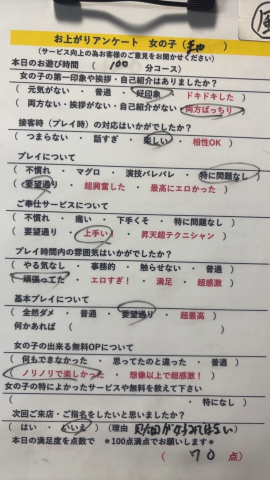 お上がりアンケート 女の子( )
(サービス向上の為お客様のご意見をお聞かせください)
本日のお遊び時間 ( 100 分コース)
女の子の第一印象や挨拶・自己紹介はありましたか?
( 元気がない ・ 普通 ・ 好印象 ・ ドキドキした
( 両方ない・挨拶がない・自己紹介がない・両方ばっちり )
接客時(プレイ時)の対応はいかがでしたか?
( つまらない ・ 話すぎ ・ 楽しい ・ 相性OK )
プレイについて
( 不慣れ ・ マグロ ・ 演技バレバレ ・ 特に問題なし
( 要望通り ・ 超興奮した ・ 最高にエロかった )
ご奉仕サービスについて
( 不慣れ ・ 痛い ・ 下手くそ ・ 特に問題なし
( 要望通り ・ 上手い! ・ 昇天超テクニシャン )
プレイ時間内の雰囲気はいかがでしたか?
( やる気なし ・ 事務的 ・ 触らせない ・ 普通
( 頑張ってた ・ エロすぎ! ・ 満足 ・ 超感激 )
基本プレイについて
( 全然ダメ ・ 普通 ・ 要望通り ・ 超最高
何かあれば ( )
女の子の出来る無料OPについて
( 何もできなかった ・ 思ってたのと違った ・ 普通
( ノリノリで楽しかった ・ 想像以上で超感激! )
女の子の特によかったサービスや無料を教えて下さい
( ・ 特になし )
次回ご来店・ご指名をしたいと思いましたか?
( はい ・ いいえ ) (理由
本日の満足度を点数で *100点満点でお願いします*
( 70 点)